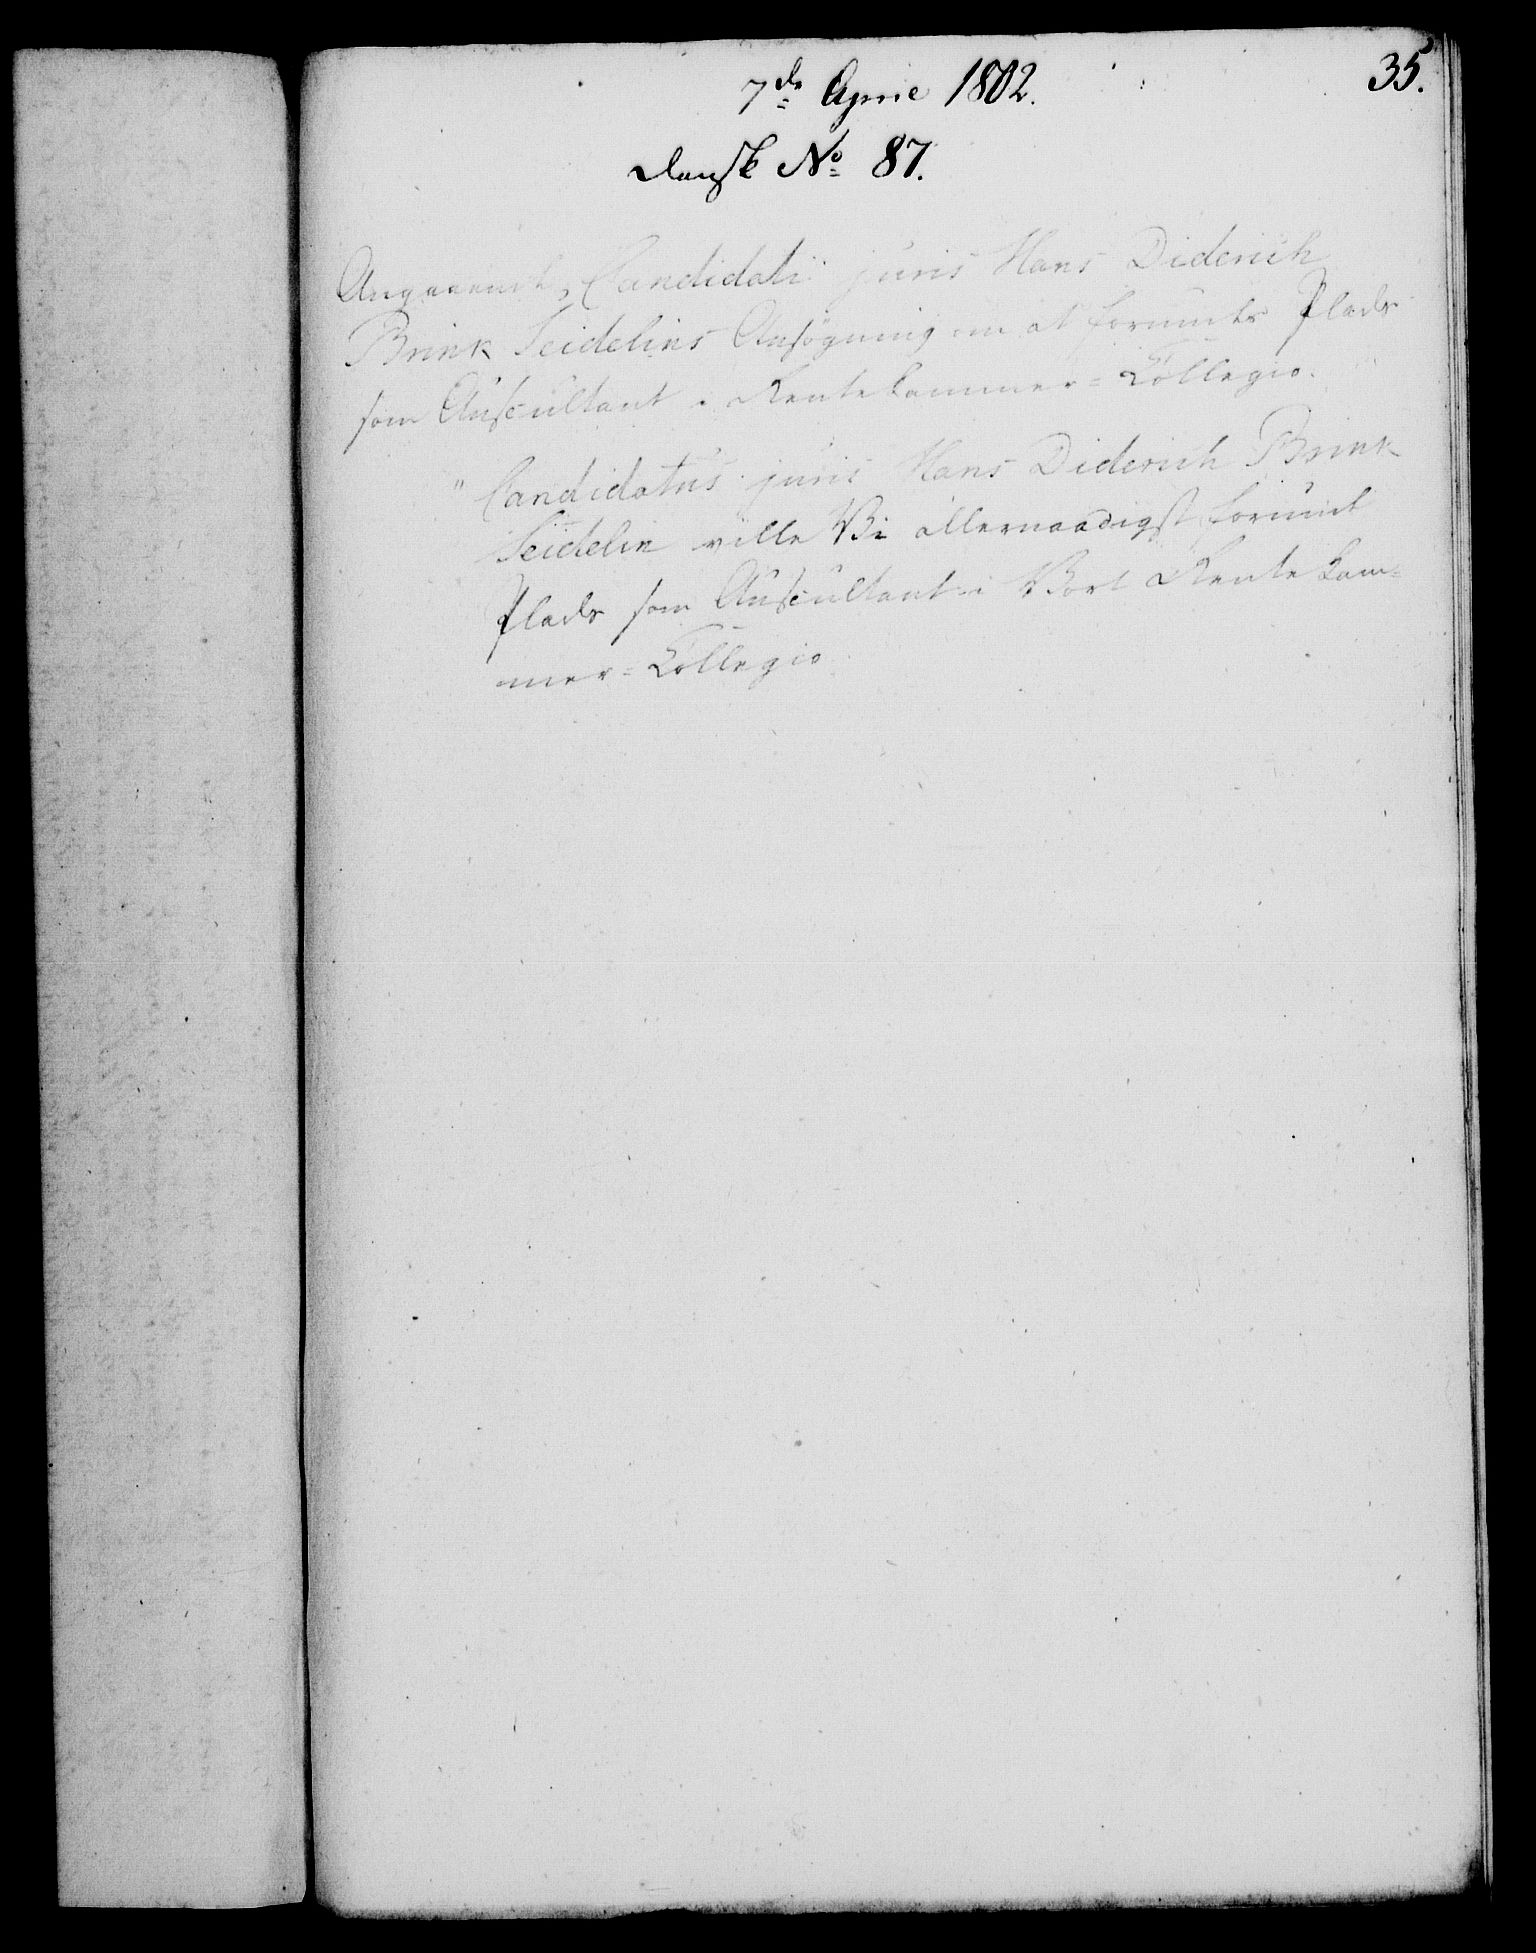 35.
7de April 1802.
Dansk No 87.
Angaaende, Candidati juris Hans Diderich
Brink Seidelins Ansøgning om at forundes Plads
som Auscultant i Rentekammer=Collegio.
" Candidatus juris Hans Diderich Brink
Seidelin ville Vi allernaadigst forundt
Plads som Auscultant i Vort Rentekam=
mer=Collegio